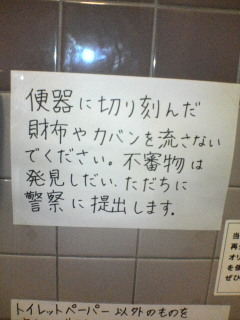 便器に切り刻んだ
財布やカバンを流さない
でください。不審物は
発見しだい、ただちに
警察に提出します。
当
再
オリ
を使
ぜひ
トイレットペーパー以外のものを